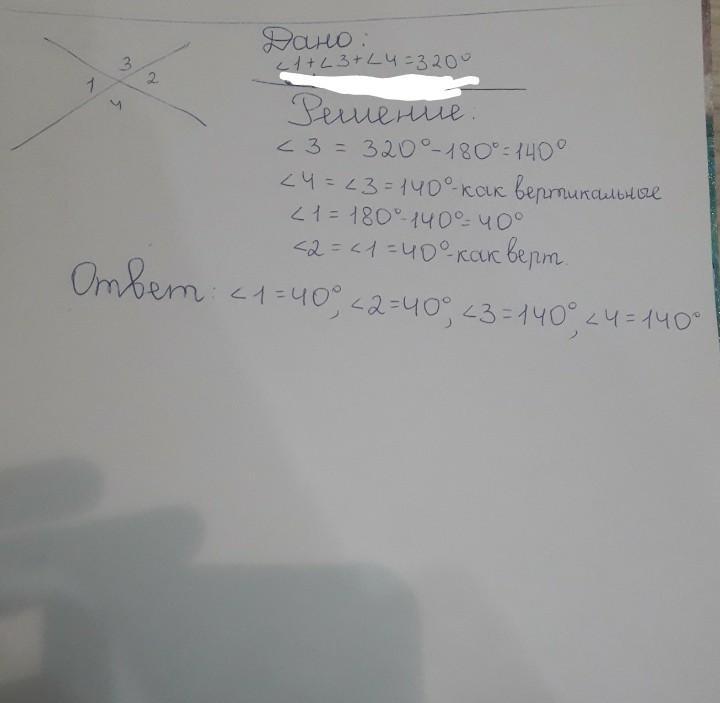 3
1 2
4
Дано:
∠1+∠3+∠4=320°
Решение:
∠3 = 320°-180°=140°
∠4=∠3=140°-как вертикальные
∠1=180°-140°=40°
∠2=∠1=40°-как верт.
Ответ: ∠1=40°, ∠2=40°, ∠3=140°, ∠4=140°